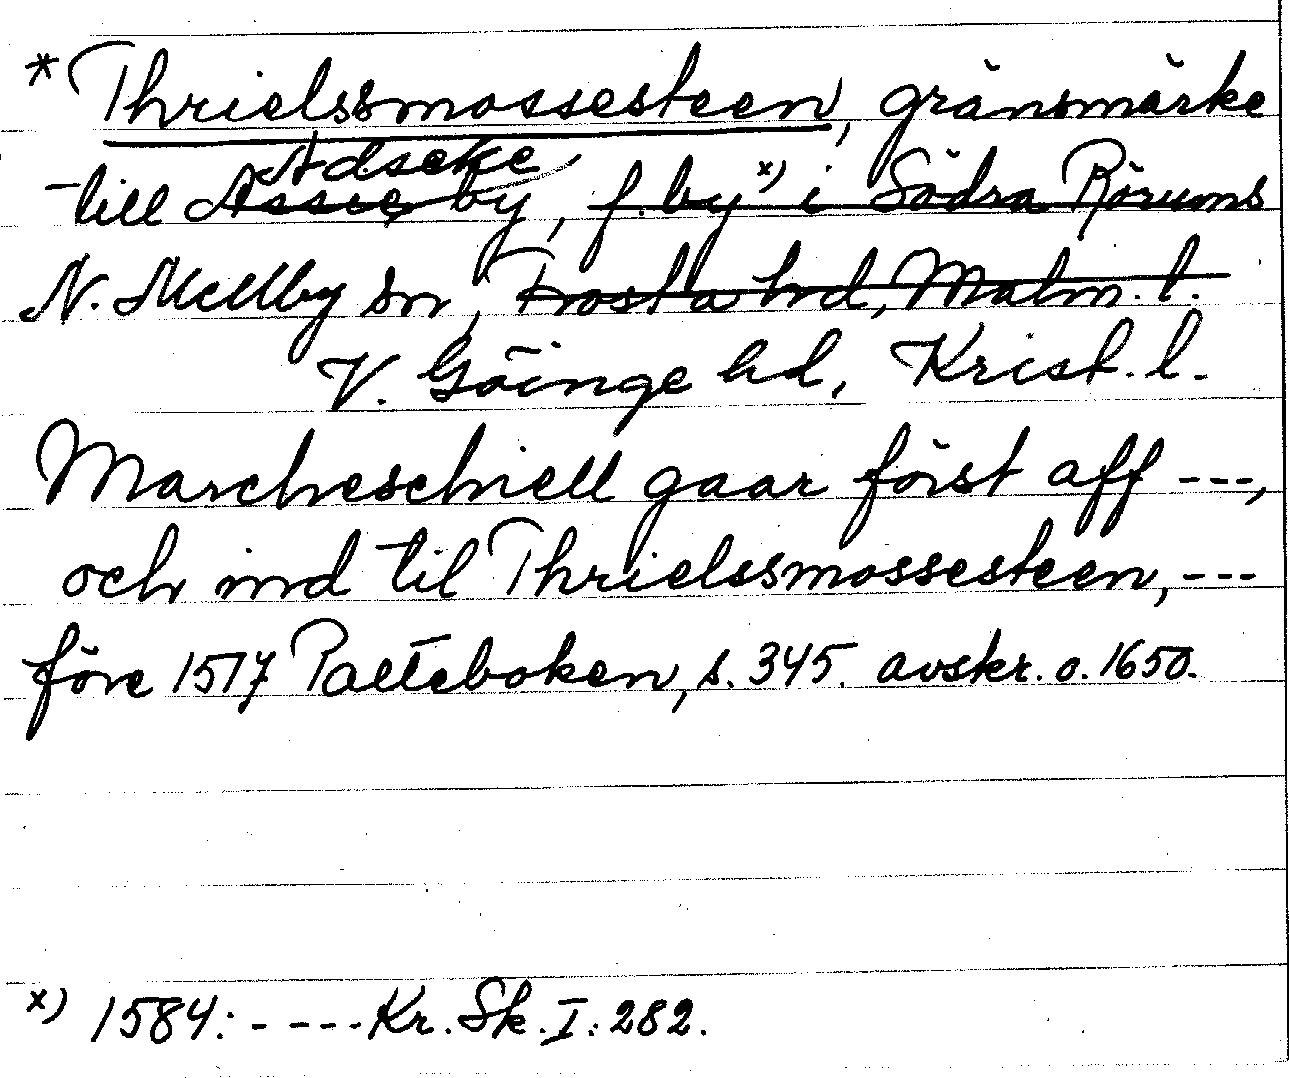 * Thrielssmossesteen, gränsmärke
Adseke
till Assie by, f. by x) i Södra Rörums
N. Mellby sn, Frosta hd, Malm. l.
V. Göinge hd, Krist. l.
Marcheschiell gaar först aff ---,
och ind til Thrielssmossesteen, ---
före 1517 Palteboken, s. 345. avskr. o. 1650.
x) 1584: ---- Kr. Sk. I: 282.